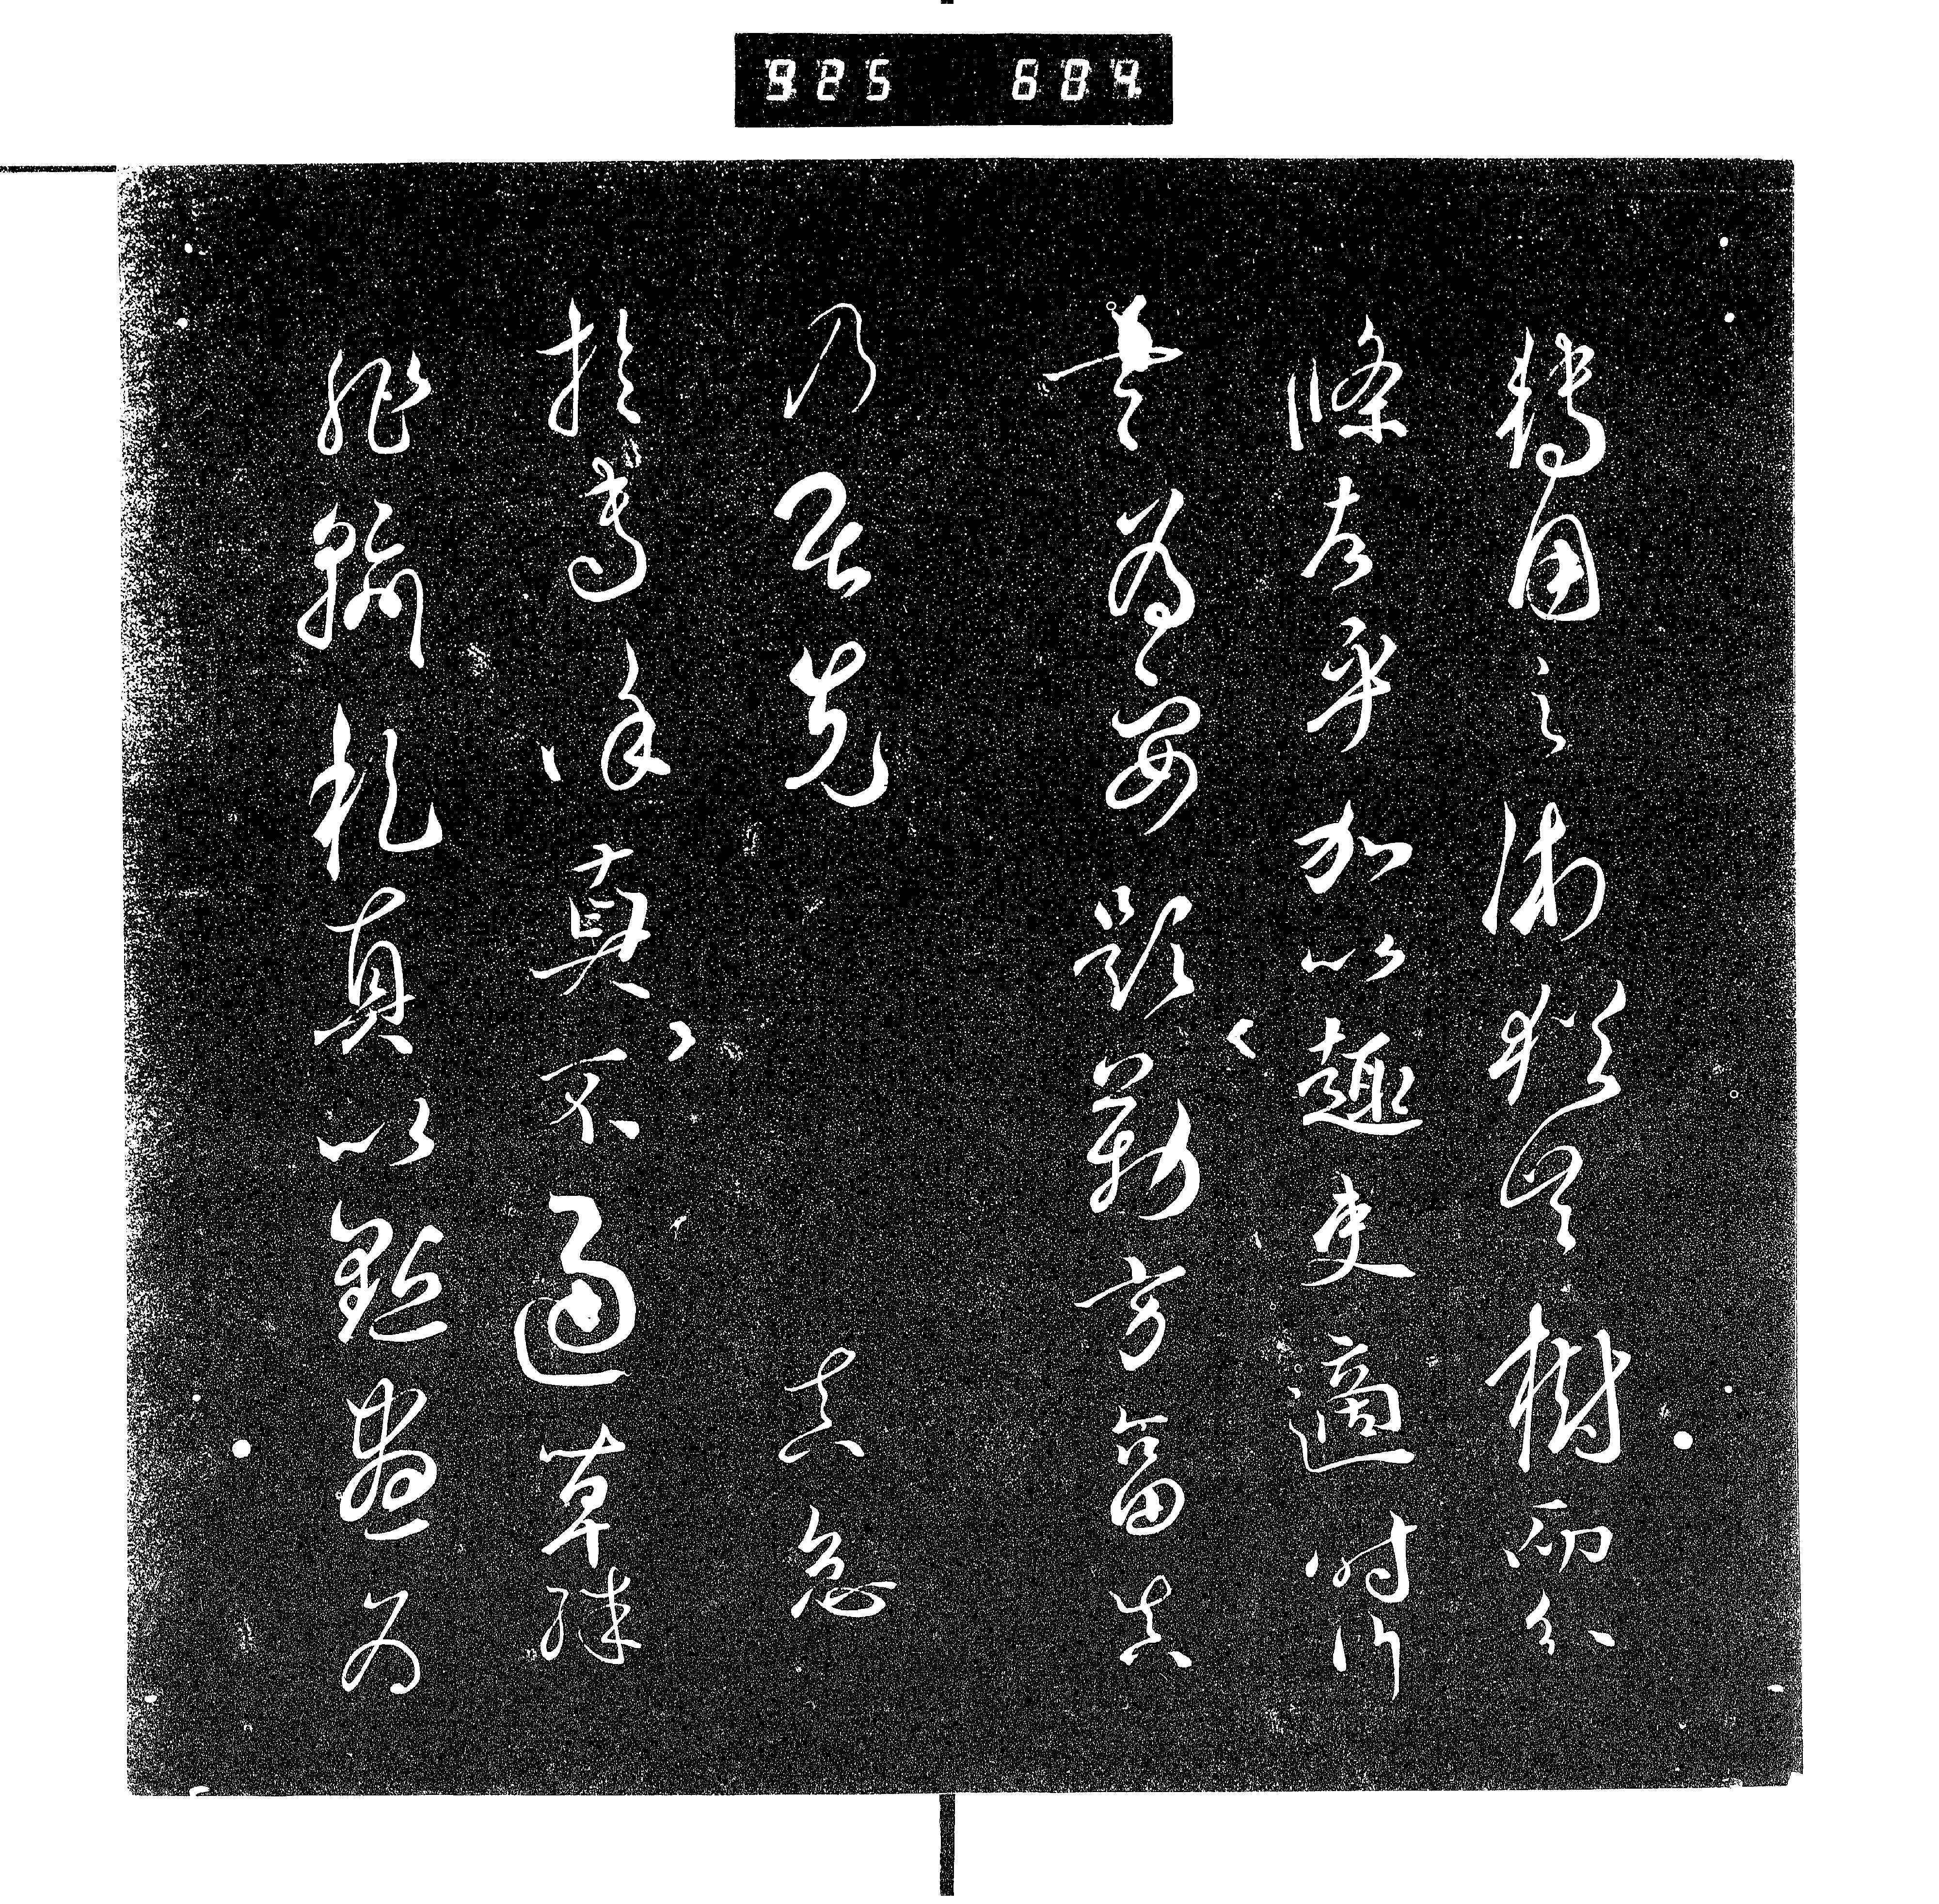 轉用之術猶共樹而分
條者乎加以趨變適時行
書為要題勒方畐真
乃居先 真殆
於專謹真不通草殊
非翰札真以點畫為
925 684